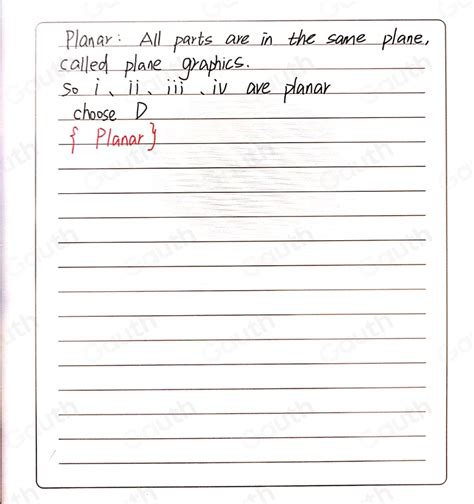 Planar: All parts are in the same plane,
called plane graphics.
So i、ii、iii、iv are planar
choose D
{ Planar}